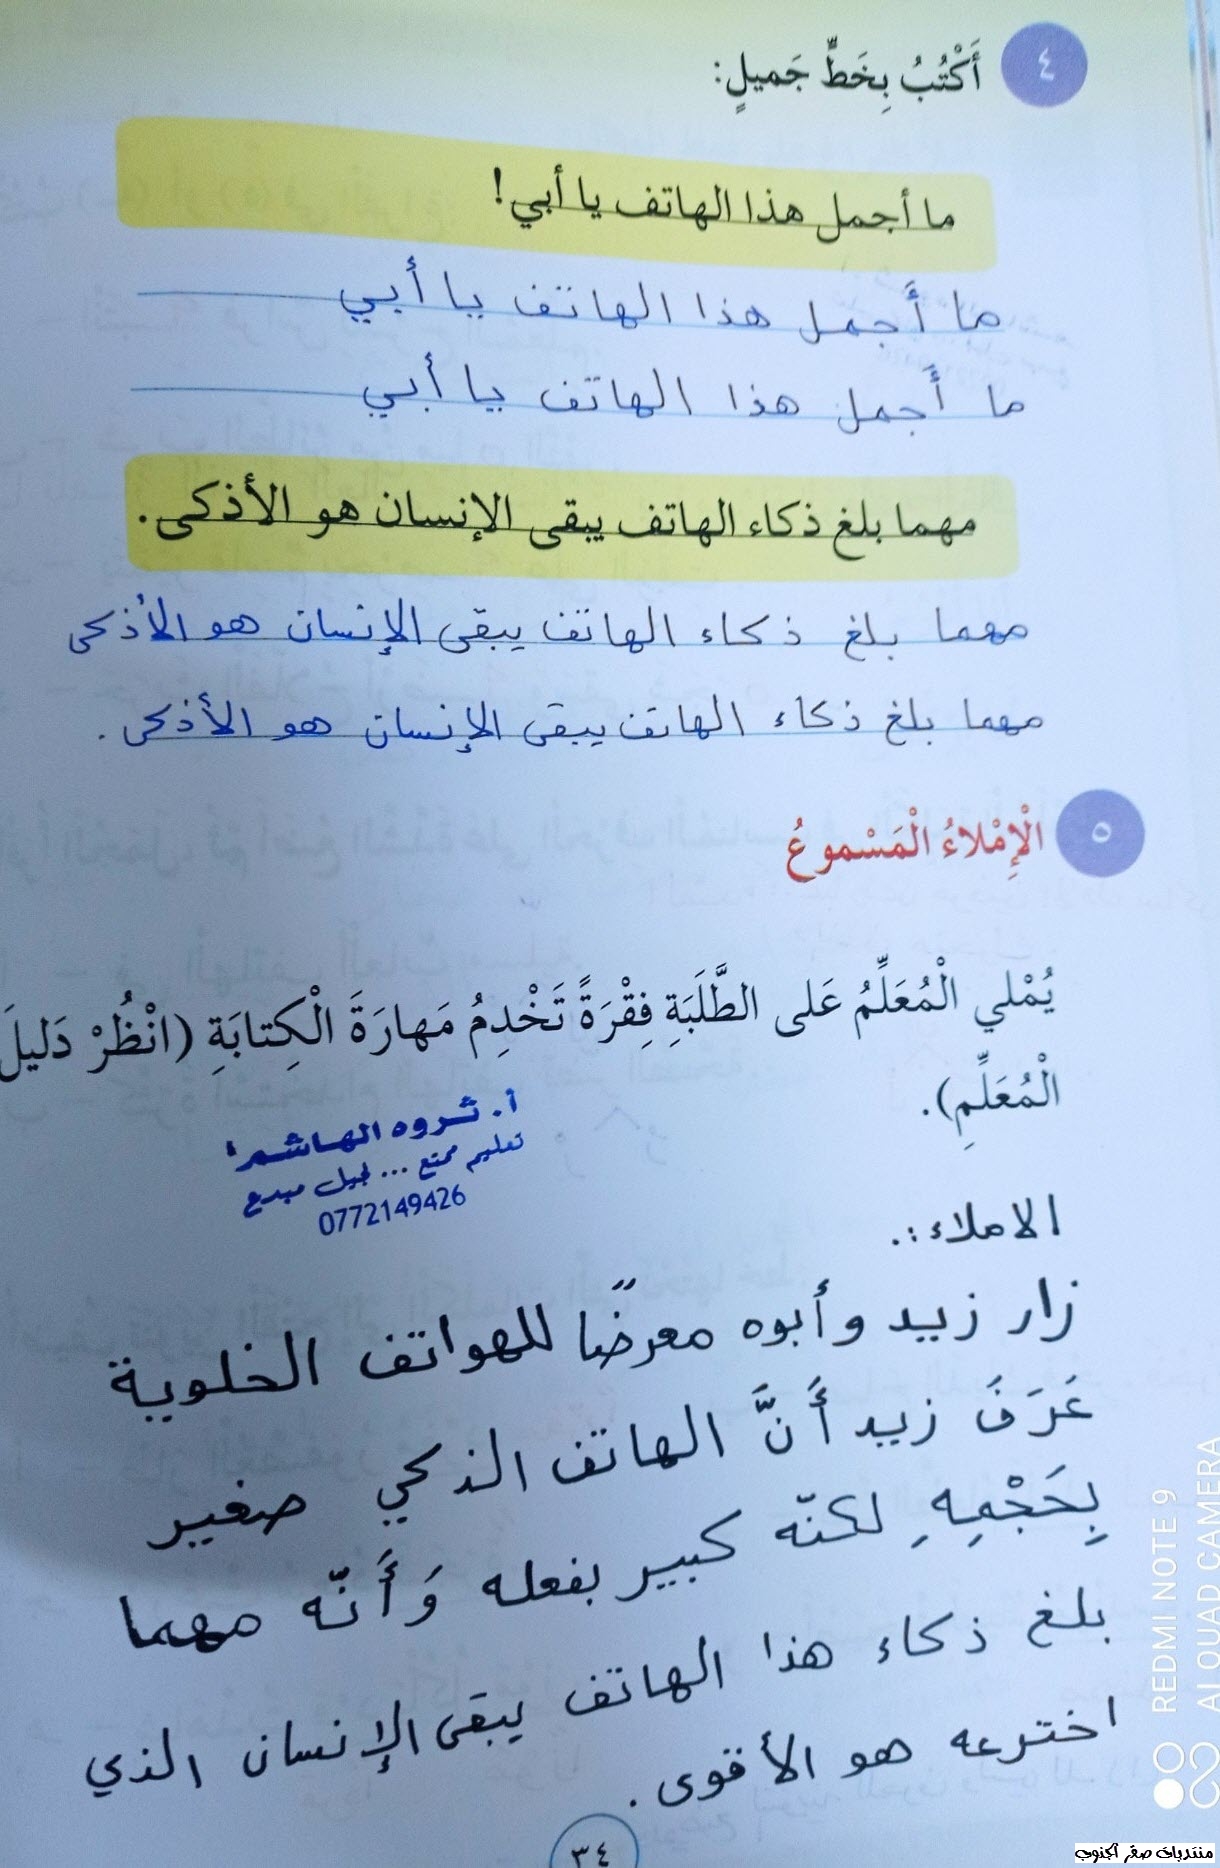 ٤
أَكْتُبُ بِخَطٍّ جَميلٍ:
ما أجمل هذا الهاتف يا أبي!
ما أَجمل هذا الهاتف يا أبي
ما أَجمل هذا الهاتف يا أبي
مهما بلغ ذكاء الهاتف يبقى الإنسان هو الأذكى.
مهما بلغ ذكاء الهاتف يبقى الإنسان هو الأذكى
مهما بلغ ذكاء الهاتف يبقى الإنسان هو الأذكى.
٥
الْإِمْلاءُ الْمَسْموعُ
يُمْلي الْمُعَلِّمُ عَلى الطَّلَبَةِ فِقْرَةً تَخْدِمُ مَهارَةَ الْكِتابَةِ (انْظُرْ دَليلَ
الْمُعَلِّمِ).
أ. ثروه الهاشم
تعليم ممتع ... لجيل مبدع
0772149426
الاملاء :.
زار زيد وأبوه معرضًا للهواتف الخلوية
عَرَفَ زيد أَنَّ الهاتف الذكي صغير
بِحَجْمِهِ لكنّه كبير بفعله وَأَنّه مهما
بلغ ذكاء هذا الهاتف يبقى الإنسان الذي
اخترعه هو الأقوى.
٣٤
REDMI NOTE 9
AI QUAD CAMERA
منتديات صقر الجنوب